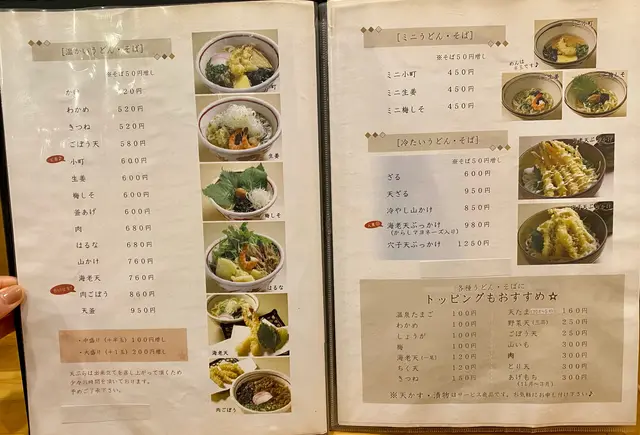 [温かいうどん・そば]
※そば50円増し
わかめ 520円
きつね 520円
ごぼう天 580円
小町 600円
生姜 600円
梅しそ 600円
釜あげ 600円
肉 680円
はるな 680円
山かけ 760円
海老天 760円
肉ごぼう 860円
天釜 950円
・中盛り(+半玉)100円増し
・大盛り(+1玉)200円増し
天ぷらは出来立てを召し上がって頂くため
少々お時間を頂いております。
予めご了承下さい。
生姜
梅しそ
はるな
海老天
肉ごぼう
[ミニうどん・そば]
※そば50円増し
ミニ小町 450円
ミニ生姜 450円
ミニ梅しそ 450円
[冷たいうどん・そば]
※そば50円増し
ざる 600円
天ざる 950円
冷やし山かけ 850円
海老天ぶっかけ 980円
(からしマヨネーズ入り)
穴子天ぶっかけ 1250円
各種うどん・そばに
トッピングもおすすめ☆
温泉たまご 100円
わかめ 100円
しょうが 100円
梅 100円
海老天(一尾) 120円
ちく天 120円
きつね 150円
天たま 160円
野菜天 250円
ごぼう天 250円
山いも 300円
肉 300円
とり天 300円
あげもち 300円
※天かす・漬物はサービス商品です。お気軽にお申し付け下さい♪